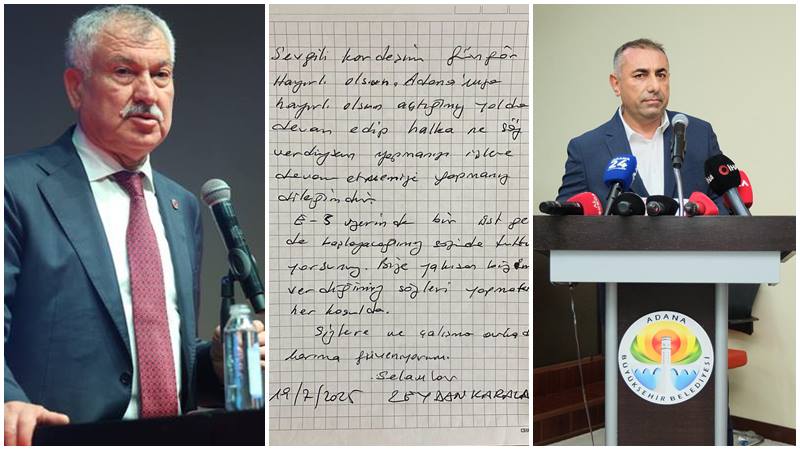 Sevgili kardeşim Güngör
Hayırlı olsun. Adana'mıza
hayırlı olsun açtığımız yolda
devam edip halka ne söz
verdiysem yapmanız işlere
devam etmeniz yapmanız
dileğimdir.
E-5 üzerinde bir üst ge
de başlayacağımız sözü de tuttu
yorsunuz. Bize yakışan biz
verdiğimiz sözleri yapmak
her koşulda.
Sizlere ve çalışma arkad
larıma güveniyorum.
Selamlar
19/7/2025 ZEYDAN KARALA
24
ADANA
BÜYÜKŞEHİR BELEDİYESİ